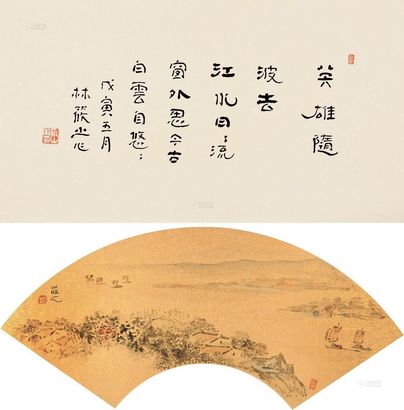 英雄隨
波去
江水日〻流
窗外思今古
白雲自悠〻
戊寅五月
林筱之